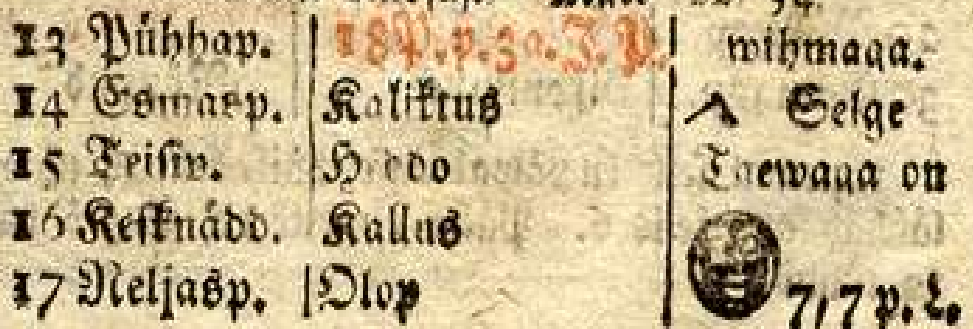 13 Pühhap. 18P. p. 3a. J. P. wihmaga.
14 Esmasp. Kaliktus Selge
15 Teisiw. Heddo Taewaga on
16 Kesknädd. Kallus
17 Neljasp. Olop 7,7 p. L.